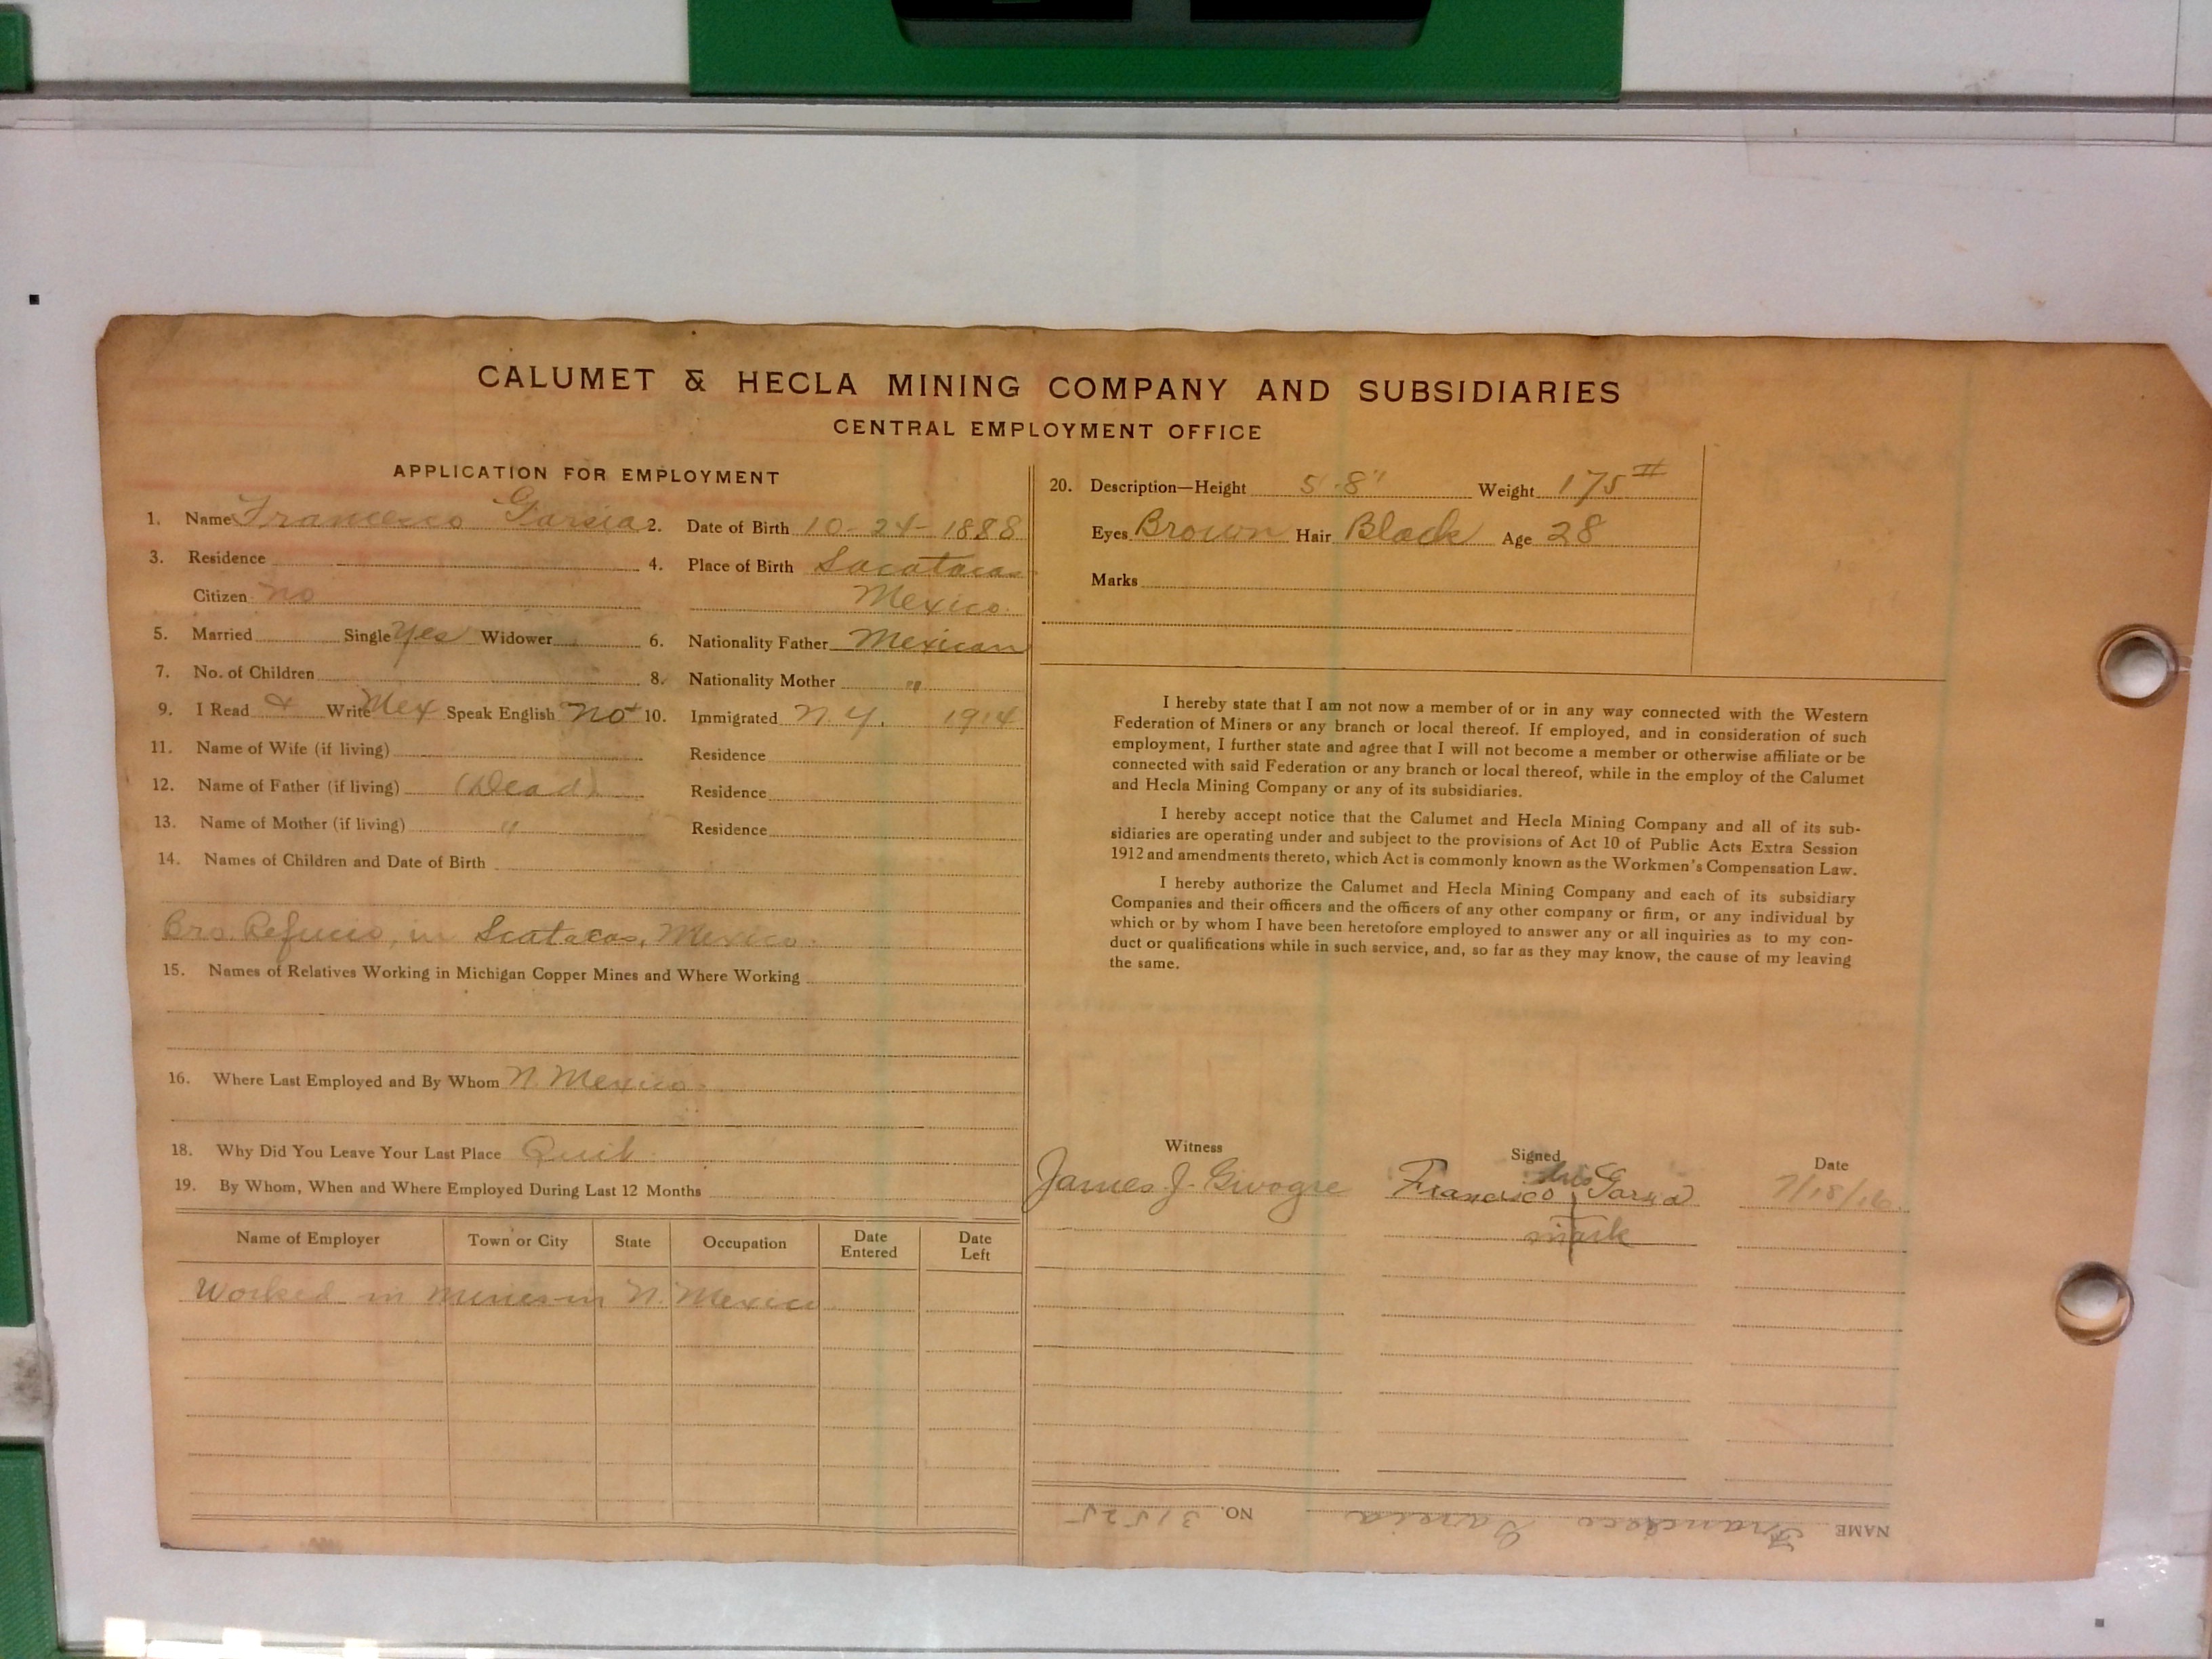 CALUMET & HECLA MINING COMPANY AND SUBSIDIARIES
CENTRAL EMPLOYMENT OFFICE
APPLICATION FOR EMPLOYMENT
1. Name Francisco Garsia 2. Date of Birth 10-24-1888
3. Residence 4. Place of Birth Sacatacas
Citizen no Mexico.
5. Married Single Yes Widower 6. Nationality Father Mexican
7. No. of Children 8. Nationality Mother "
9. I Read & Write Mex Speak English No 10. Immigrated N.Y. 1914
11. Name of Wife (if living) Residence
12. Name of Father (if living) (Dead) Residence
13. Name of Mother (if living) " Residence
14. Names of Children and Date of Birth
Bro. Refucio, in Scatacas, Mexico.
15. Names of Relatives Working in Michigan Copper Mines and Where Working
16. Where Last Employed and By Whom N. Mexico.
18. Why Did You Leave Your Last Place Quit
19. By Whom, When and Where Employed During Last 12 Months
Name of Employer Town or City State Occupation Date Entered Date Left
Worked in mines in N. Mexico
20. Description—Height 5' 8" Weight 175 #
Eyes Brown Hair Black Age 28
Marks
I hereby state that I am not now a member of or in any way connected with the Western
Federation of Miners or any branch or local thereof. If employed, and in consideration of such
employment, I further state and agree that I will not become a member or otherwise affiliate or be
connected with said Federation or any branch or local thereof, while in the employ of the Calumet
and Hecla Mining Company or any of its subsidiaries.
I hereby accept notice that the Calumet and Hecla Mining Company and all of its sub-
sidiaries are operating under and subject to the provisions of Act 10 of Public Acts Extra Session
1912 and amendments thereto, which Act is commonly known as the Workmen's Compensation Law.
I hereby authorize the Calumet and Hecla Mining Company and each of its subsidiary
Companies and their officers and the officers of any other company or firm, or any individual by
which or by whom I have been heretofore employed to answer any or all inquiries as to my con-
duct or qualifications while in such service, and, so far as they may know, the cause of my leaving
the same.
Witness Signed Date
James J. his 7/18/16
Francisco Garsia
mark
NAME Francisco Garcia NO. 31525